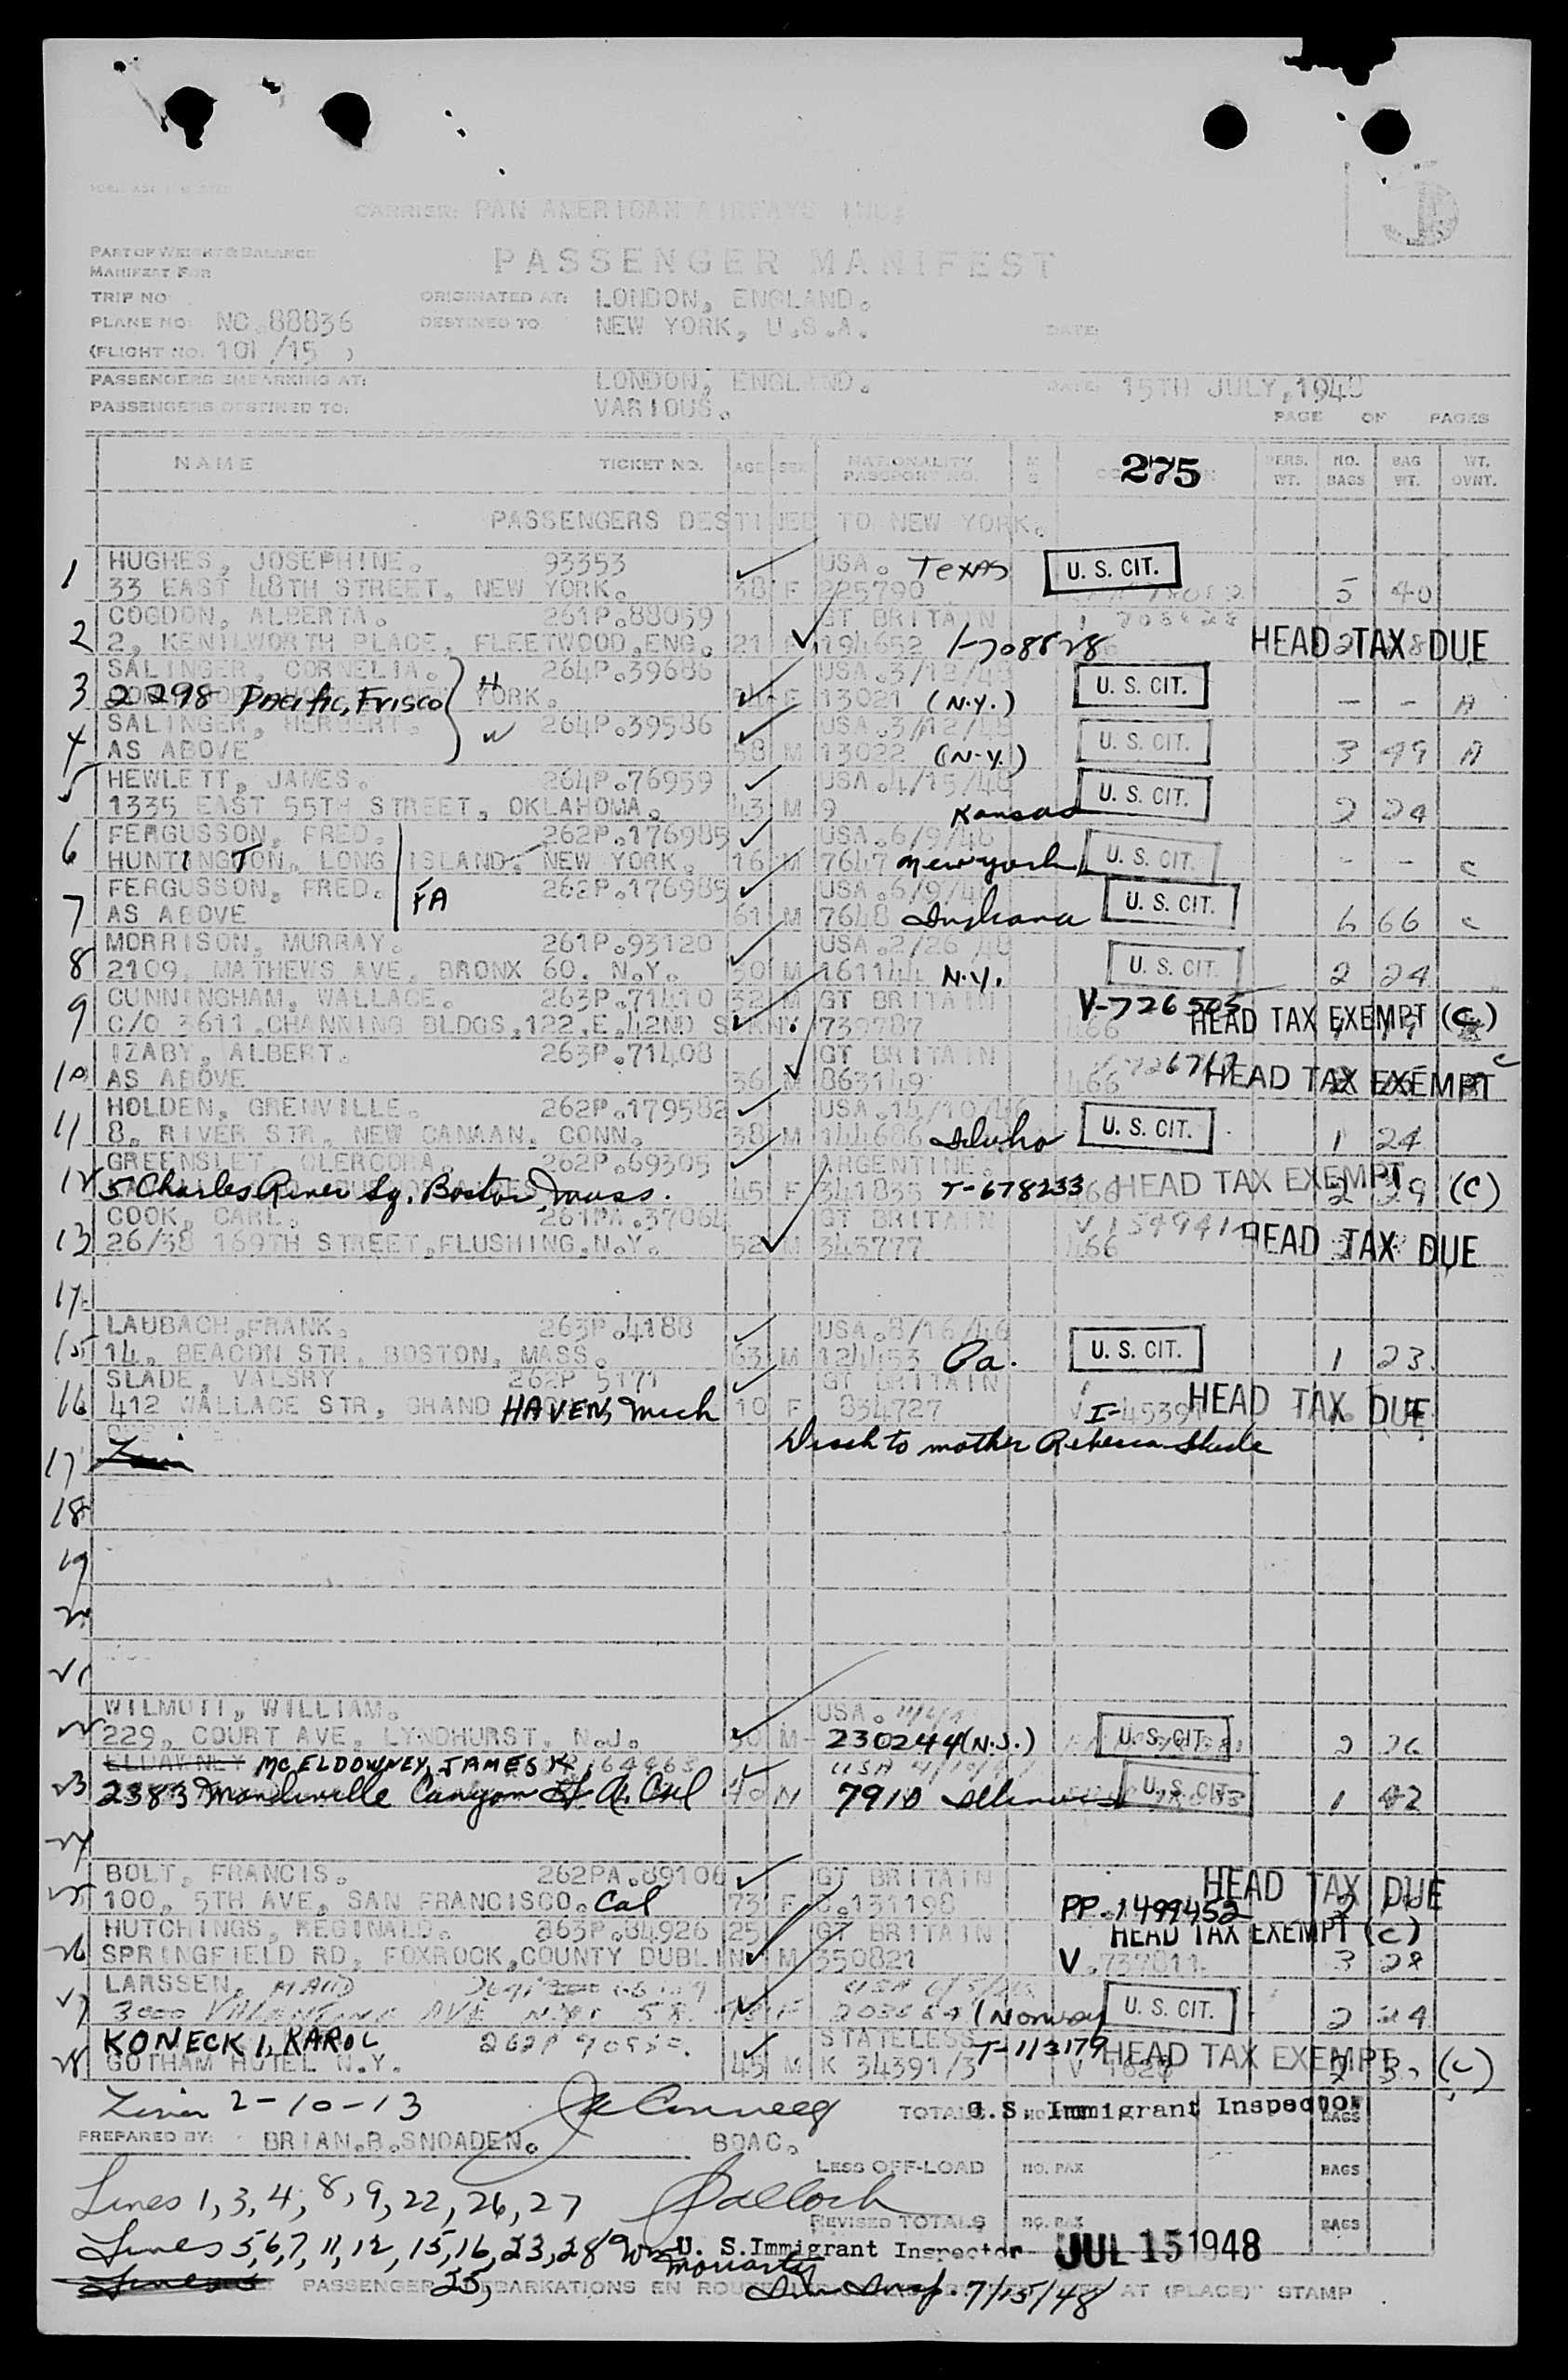 CARRIER: PAN AMERICAN AIRWAYS INC.
PART OF WEIGHT & BALANCE
MANIFEST FOR
PASSENGER MANIFEST
TRIP NO.
ORIGINATED AT: LONDON, ENGLAND.
PLANE NO. NC.88836
DESTINED TO NEW YORK, U.S.A.
DATE:
(FLIGHT NO. 101/15 )
PASSENGERS EMBARKING AT: LONDON, ENGLAND. DATE: 15TH JULY,1948
PASSENGERS DESTINED TO: VARIOUS.
PAGE OF PAGES
NAME TICKET NO. AGE SEX NATIONALITY PASSPORT NO. M S 275 PERS. WT. NO. BAGS BAG WT. WT. OVNT.
PASSENGERS DESTINED TO NEW YORK.
1 HUGHES, JOSEPHINE. 93353 USA. Texas U. S. CIT.
33 EAST 48TH STREET, NEW YORK. 38 F 225790 5 40
2 COGDON, ALBERTA. 261P.88059 GT BRITAIN
2, KENILWORTH PLACE, FLEETWOOD,ENG. 21 F 194652 1-708628 HEAD TAX DUE
3 SALINGER, CORNELIA. 264P.39686 USA.3/12/48 U. S. CIT.
2298 Pacific, Frisco YORK. F 13021 (N.Y.) - - A
4 SALINGER, HERBERT. 264P.39586 USA.3/12/48 U. S. CIT.
AS ABOVE 58 M 13022 (N.Y.) 3 49 A
5 HEWLETT, JAMES. 264P.76959 USA.4/15/48 U. S. CIT.
1335 EAST 55TH STREET, OKLAHOMA. 43 M 9 Kansas 2 24
6 FERGUSSON, FRED. 262P.176985 USA.6/9/48
HUNTINGTON, LONG ISLAND, NEW YORK. 16 M 7647 New York U. S. CIT. - - C
7 FERGUSSON, FRED. FA 262P.176985 USA.6/9/48 U. S. CIT.
AS ABOVE 61 M 7648 Indiana 6 66 C
8 MORRISON, MURRAY. 261P.93120 USA.2/26/48
2109, MATHEWS AVE, BRONX 60, N.Y. 30 M 161144 N.Y. U. S. CIT. 2 24
9 CUNNINGHAM, WALLACE. 263P.71410 32 M GT BRITAIN V-726505
C/O 3611,CHANNING BLDGS,122,E.42ND S NY. 739787 466 HEAD TAX EXEMPT (C)
10 IZABY, ALBERT. 263P.71408 GT BRITAIN
AS ABOVE 36 M 863149 466 HEAD TAX EXEMPT C
11 HOLDEN, GRENVILLE. 262P.179582 USA.14/10/46
8, RIVER STR, NEW CANAAN, CONN. 38 M 144686 Idaho U. S. CIT. 1 24
12 GREENSLET 262P.69305 ARGENTINE.
5 Charles River Sq. Boston, Mass. 45 F 341835 T-678233 HEAD TAX EXEMPT 2 29 (C)
13 COOK, CARL. 261PA.37064 GT BRITAIN
26/38 169TH STREET,FLUSHING,N.Y. 52 M 345777 466 HEAD TAX DUE
14
15 LAUBACH,FRANK. 263P.4188 USA.8/16/46
14, BEACON STR, BOSTON, MASS. 63 M 124453 Pa. U. S. CIT. 1 23
16 SLADE, VALSRY 262P 5171 GT BRITAIN
412 WALLACE STR, GRAND HAVEN, Mich 10 F 834727 HEAD TAX DUE
17 Disch to mother Rebecca Slade
18
19
20
21
22 WILMOTT, WILLIAM. USA.
229, COURT AVE, LYNDHURST, N.J. M 230244 (N.J.) U. S. CIT. 2 26
23 MC ELDOWNEY, JAMES K. USA
2383 Mandeville Canyon L A. Cal 40 M 7910 Illinois U. S. CIT. 1 42
24
25 BOLT, FRANCIS. 262PA.89106 GT BRITAIN HEAD TAX DUE
100, 5TH AVE, SAN FRANCISCO. Cal 73 F C.131198 PP.1499452
26 HUTCHINGS, REGINALD. 263P.84926 25 GT BRITAIN HEAD TAX EXEMPT (C)
SPRINGFIELD RD, FOXROCK,COUNTY DUBLIN M 350821 V.737811. 3 28
27 LARSSEN, USA
3000 VALENTINE AVE N.Y. 58. F 203664 (Norway U. S. CIT. 2 24
28 KONECKI, KAROL STATELESS T-113179
GOTHAM HOTEL N.Y. 45 M K 34391/3 V 1628 HEAD TAX EXEMPT (C)
Lines 2-10-13 TOTALS U.S. Immigrant Inspector BAGS
PREPARED BY: BRIAN.B.SNOADEN. BOAC.
LESS OFF-LOAD NO. PAX BAGS
Lines 1, 3, 4, 8, 9, 22, 26, 27
REVISED TOTALS NO. PAX BAGS
Lines 5,6,7, 11, 12, 15,16, 23, 28 U. S. Immigrant Inspector JUL 15 1948
25, Moriarty
PASSENGER EMBARKATIONS EN ROUTE Im Insp. 7/15/48 AT (PLACE)" STAMP